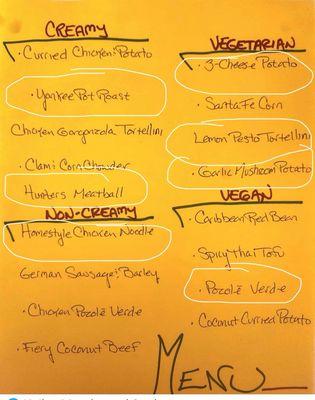 CREAMY
· Curried Chicken & Potato
· Yankee Pot Roast
Chicken Gorgonzola Tortellini
· Clam & Corn Chowder
Hunters Meatball
NON-CREAMY
Homestyle Chicken Noodle
German Sausage & Barley
· Chicken Pozolé Verde
· Fiery Coconut Beef
VEGETARIAN
· 3-Cheese Potato
· Santa Fe Corn
Lemon Pesto Tortellini
· Garlic Mushroom Potato
VEGAN
· Caribbean Red Bean
· Spicy Thai Tofu
· Pozolé Verde
· Coconut Curried Potato
MENU